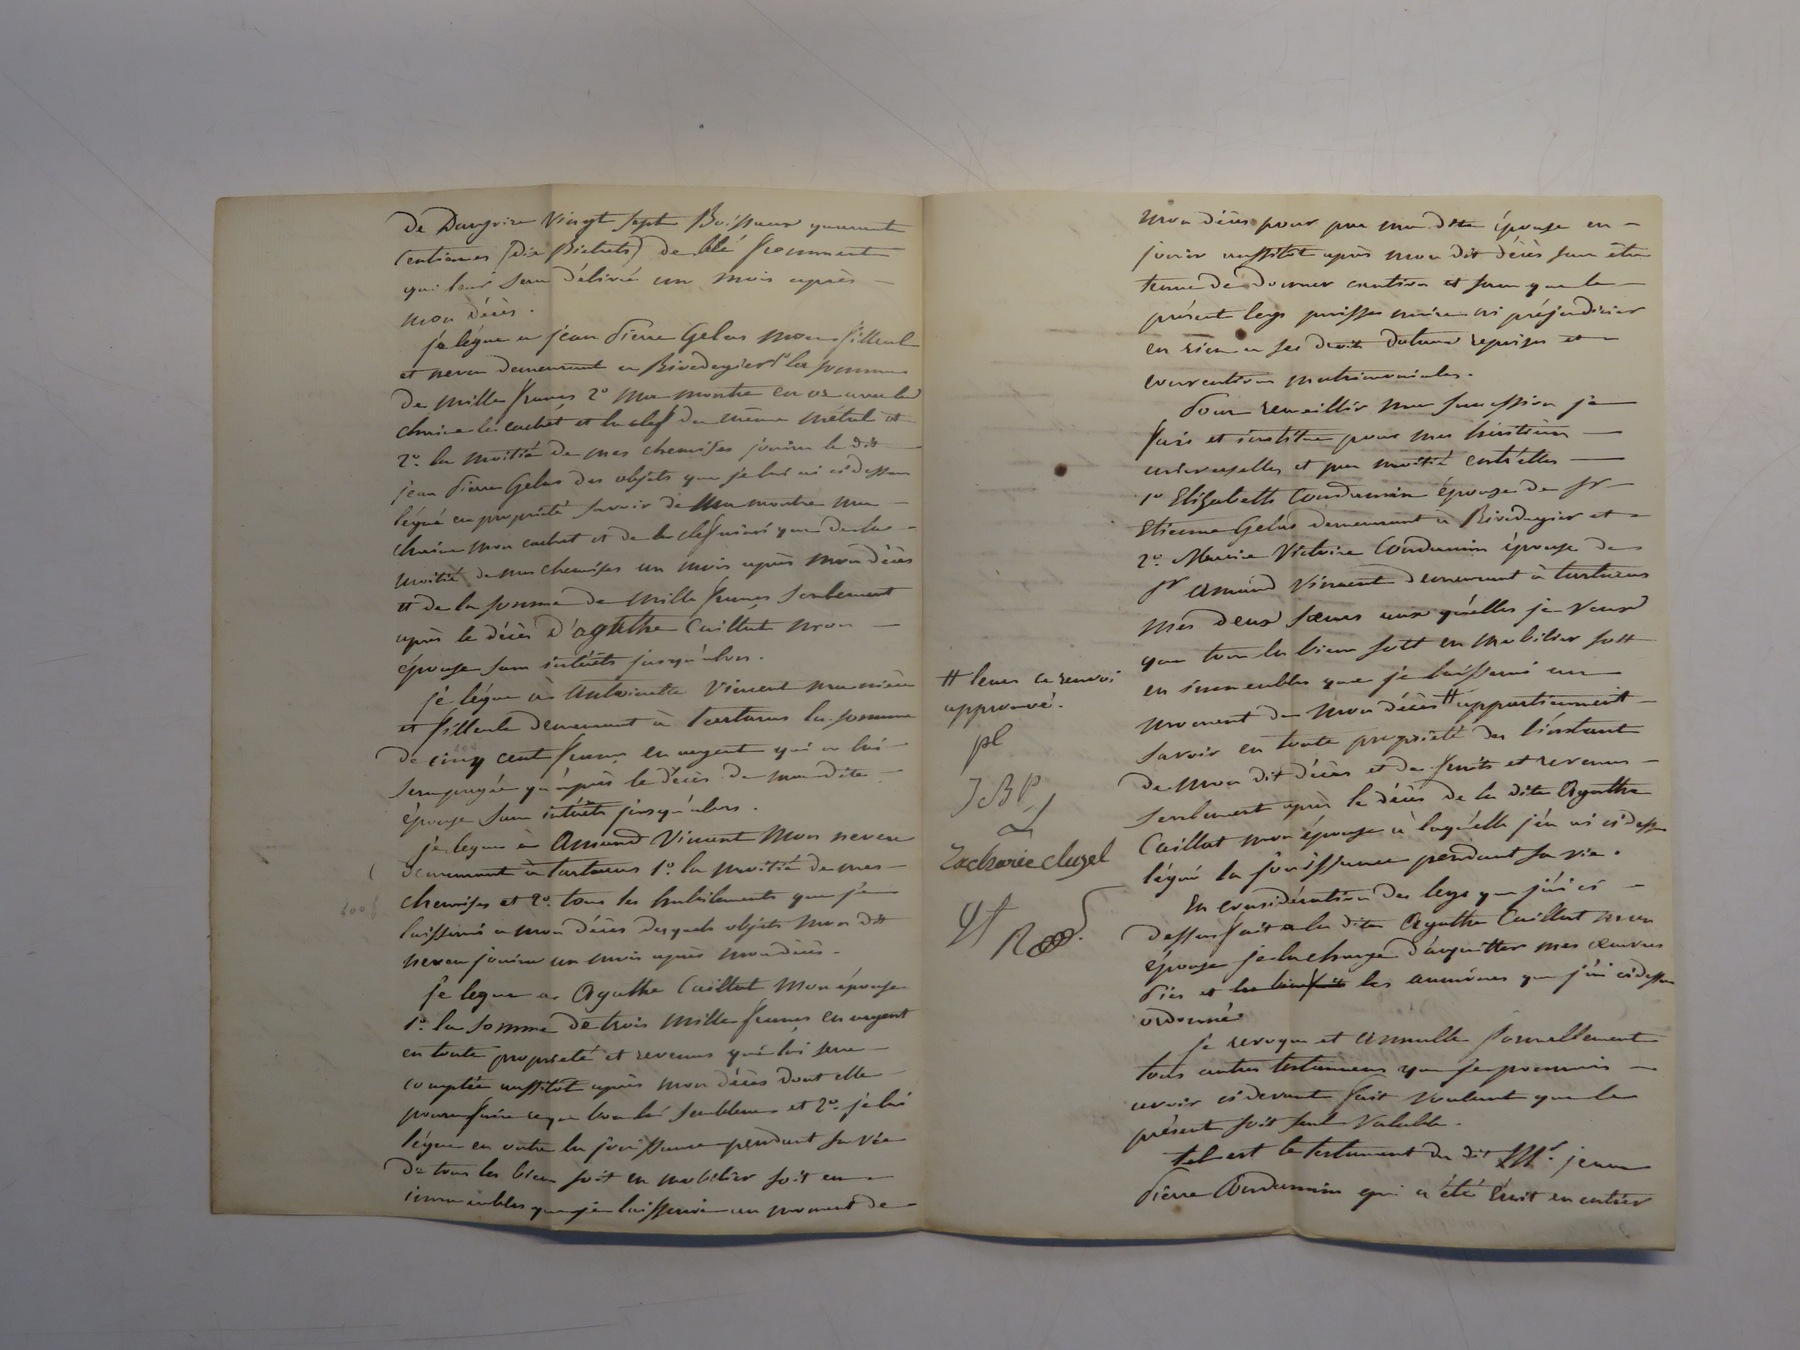 de Dargoire Vingt sept Boisseaux quarante
centiemes (dix Bichets) de blé froument
qui leur sera délivré un mois après
mon décès.
je légue a jean Pierre Gelas mon filleul
et neveu demeurant a Rivedegier 1º la somme
de mille francs 2º ma montre en or avec la
chaine le cachet et la clef du même métal et
2º la moitié de mes chemises jouira le dit
jean Pierre Gelas des objets que je lui ai cidessus
légué en propriété savoir de Ma montre ma
chaine mon cachet et de la clef ainsi que de la
moitié de mes chemises un mois après mon décès
et de la somme de mille francs seulement
après le décès d'agathe Caillat mon
épouse sans intérêts jusqu'alors.
je légue à Antoinette Vincent ma nièce
et filleule demeurant à tartaras la somme
de cinq cent francs en argent qui ne lui
sera payée qu'après le décès de ma dite
épouse sans intérêts jusqu'alors.
je legue à Amand Vincent Mon neveu
demeurant à tartaras 1º. la moitié de mes
chemises et 2º. tous les habilements que je
laisserai a mon décès desquels objets mon dit
neveu jouira un mois après mon décès.
je legue a Agathe Caillat Mon épouse
1º. la somme de trois mille francs en argent
en toute propriété et revenus qui lui sera
comptée aussitot après mon décès dont elle
pourra faire ce que bon lui semblera et 2º. je lui
légue en outre la jouissance pendant sa vie
de tous les biens soit en mobilier soit en
immeubles que je laisserai au moment de
600 f
mon décès pour par ma dite épouse en
jouir aussitot après mon dit décès sans être
tenue de donner caution et sans que le
présent legs puisse nuire ni préjudicier
en rien a ses droits dotaux reprises et
conventions matrimoniales.
Pour recueillir ma succession je
fais et institue pour mes héritières
universelles et par moitié entr'elles
1º Elizabeth Condamin épouse de Sr
Etienne Gelas demeurant à Rivedegier et
2º. Marie Victoire Condamin épouse de
Sr Amand Vincent demeurant à tartaras
mes deux sœurs aux quelles je veux
que tous les biens soit en mobilier soit
en immeubles que je laisserai au
moment de mon décès # appartiennent
savoir en toute propriété des l'instant
de mon dit décès et de fruits et revenus
seulement après le décès de la dite Agathe
Caillat mon épouse à laquelle j'en ai cidessus
légué la jouissance pendant sa vie.
En considération des legs que j'ai ci
dessus fait a la dite Agathe Caillat mon
épouse je la charge d'acquitter mes œuvres
Pies et les les aumônes que j'ai cidessus
ordonné
Je revoque et annulle formellement
tous autres testamens que je pourrais
avoir cidevant fait voulant que le
présent soit seul Valable.
tel est le testament du dit Mr. jean
Pierre Condamin qui a été Écrit en entier
# leurs ce renvoi
approuvé.
pC
JBP
Zacharie clugel